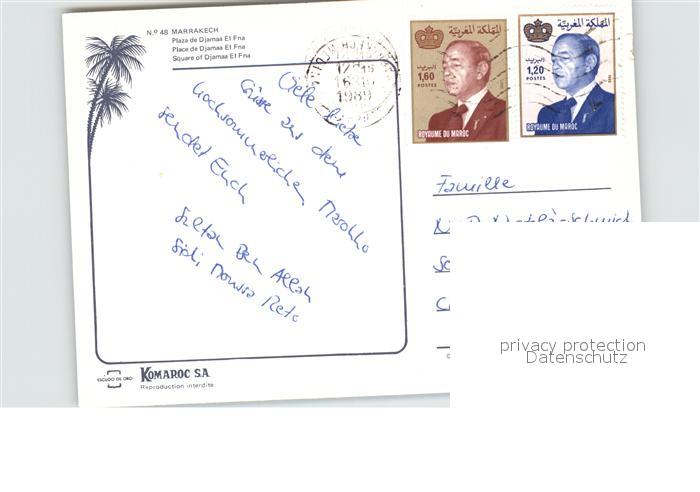 N.º 48 MARRAKECH
Plaza de Djamaa El Fna
Place de Djamaa El Fna
Square of Djamaa El Fna
Viele liebe
Grüsse aus dem
hochsommerlichen Marokko
sendet Euch
Sultan Ben Allah
Sidi Moussa Reto
ESCUDO DE ORO
KOMAROC S.A.
Reproduction interdite
1989
المملكة المغربية
البريد
1,60
POSTES
ROYAUME DU MAROC
المملكة المغربية
البريد
1,20
POSTES
ROYAUME DU MAROC
Famille
privacy protection
Datenschutz